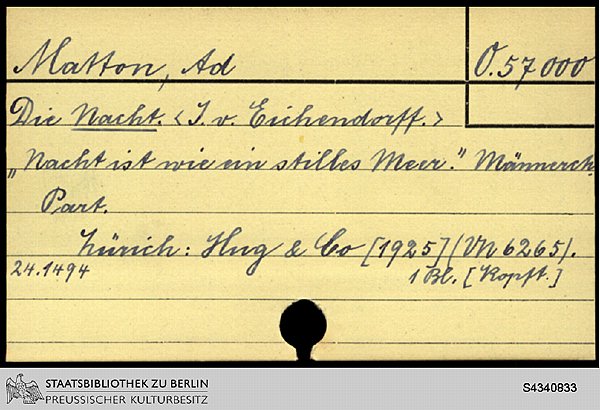 Matton, Ad
O.57000
Die Nacht. <J. v. Eichendorff.>
„Nacht ist wie ein stilles Meer." Männerch.
Part.
Zürich: Hug & Co [1925] (VN 6265).
24.1494
1 Bl. [Kopft.]
STAATSBIBLIOTHEK ZU BERLIN
PREUSSISCHER KULTURBESITZ
S4340833